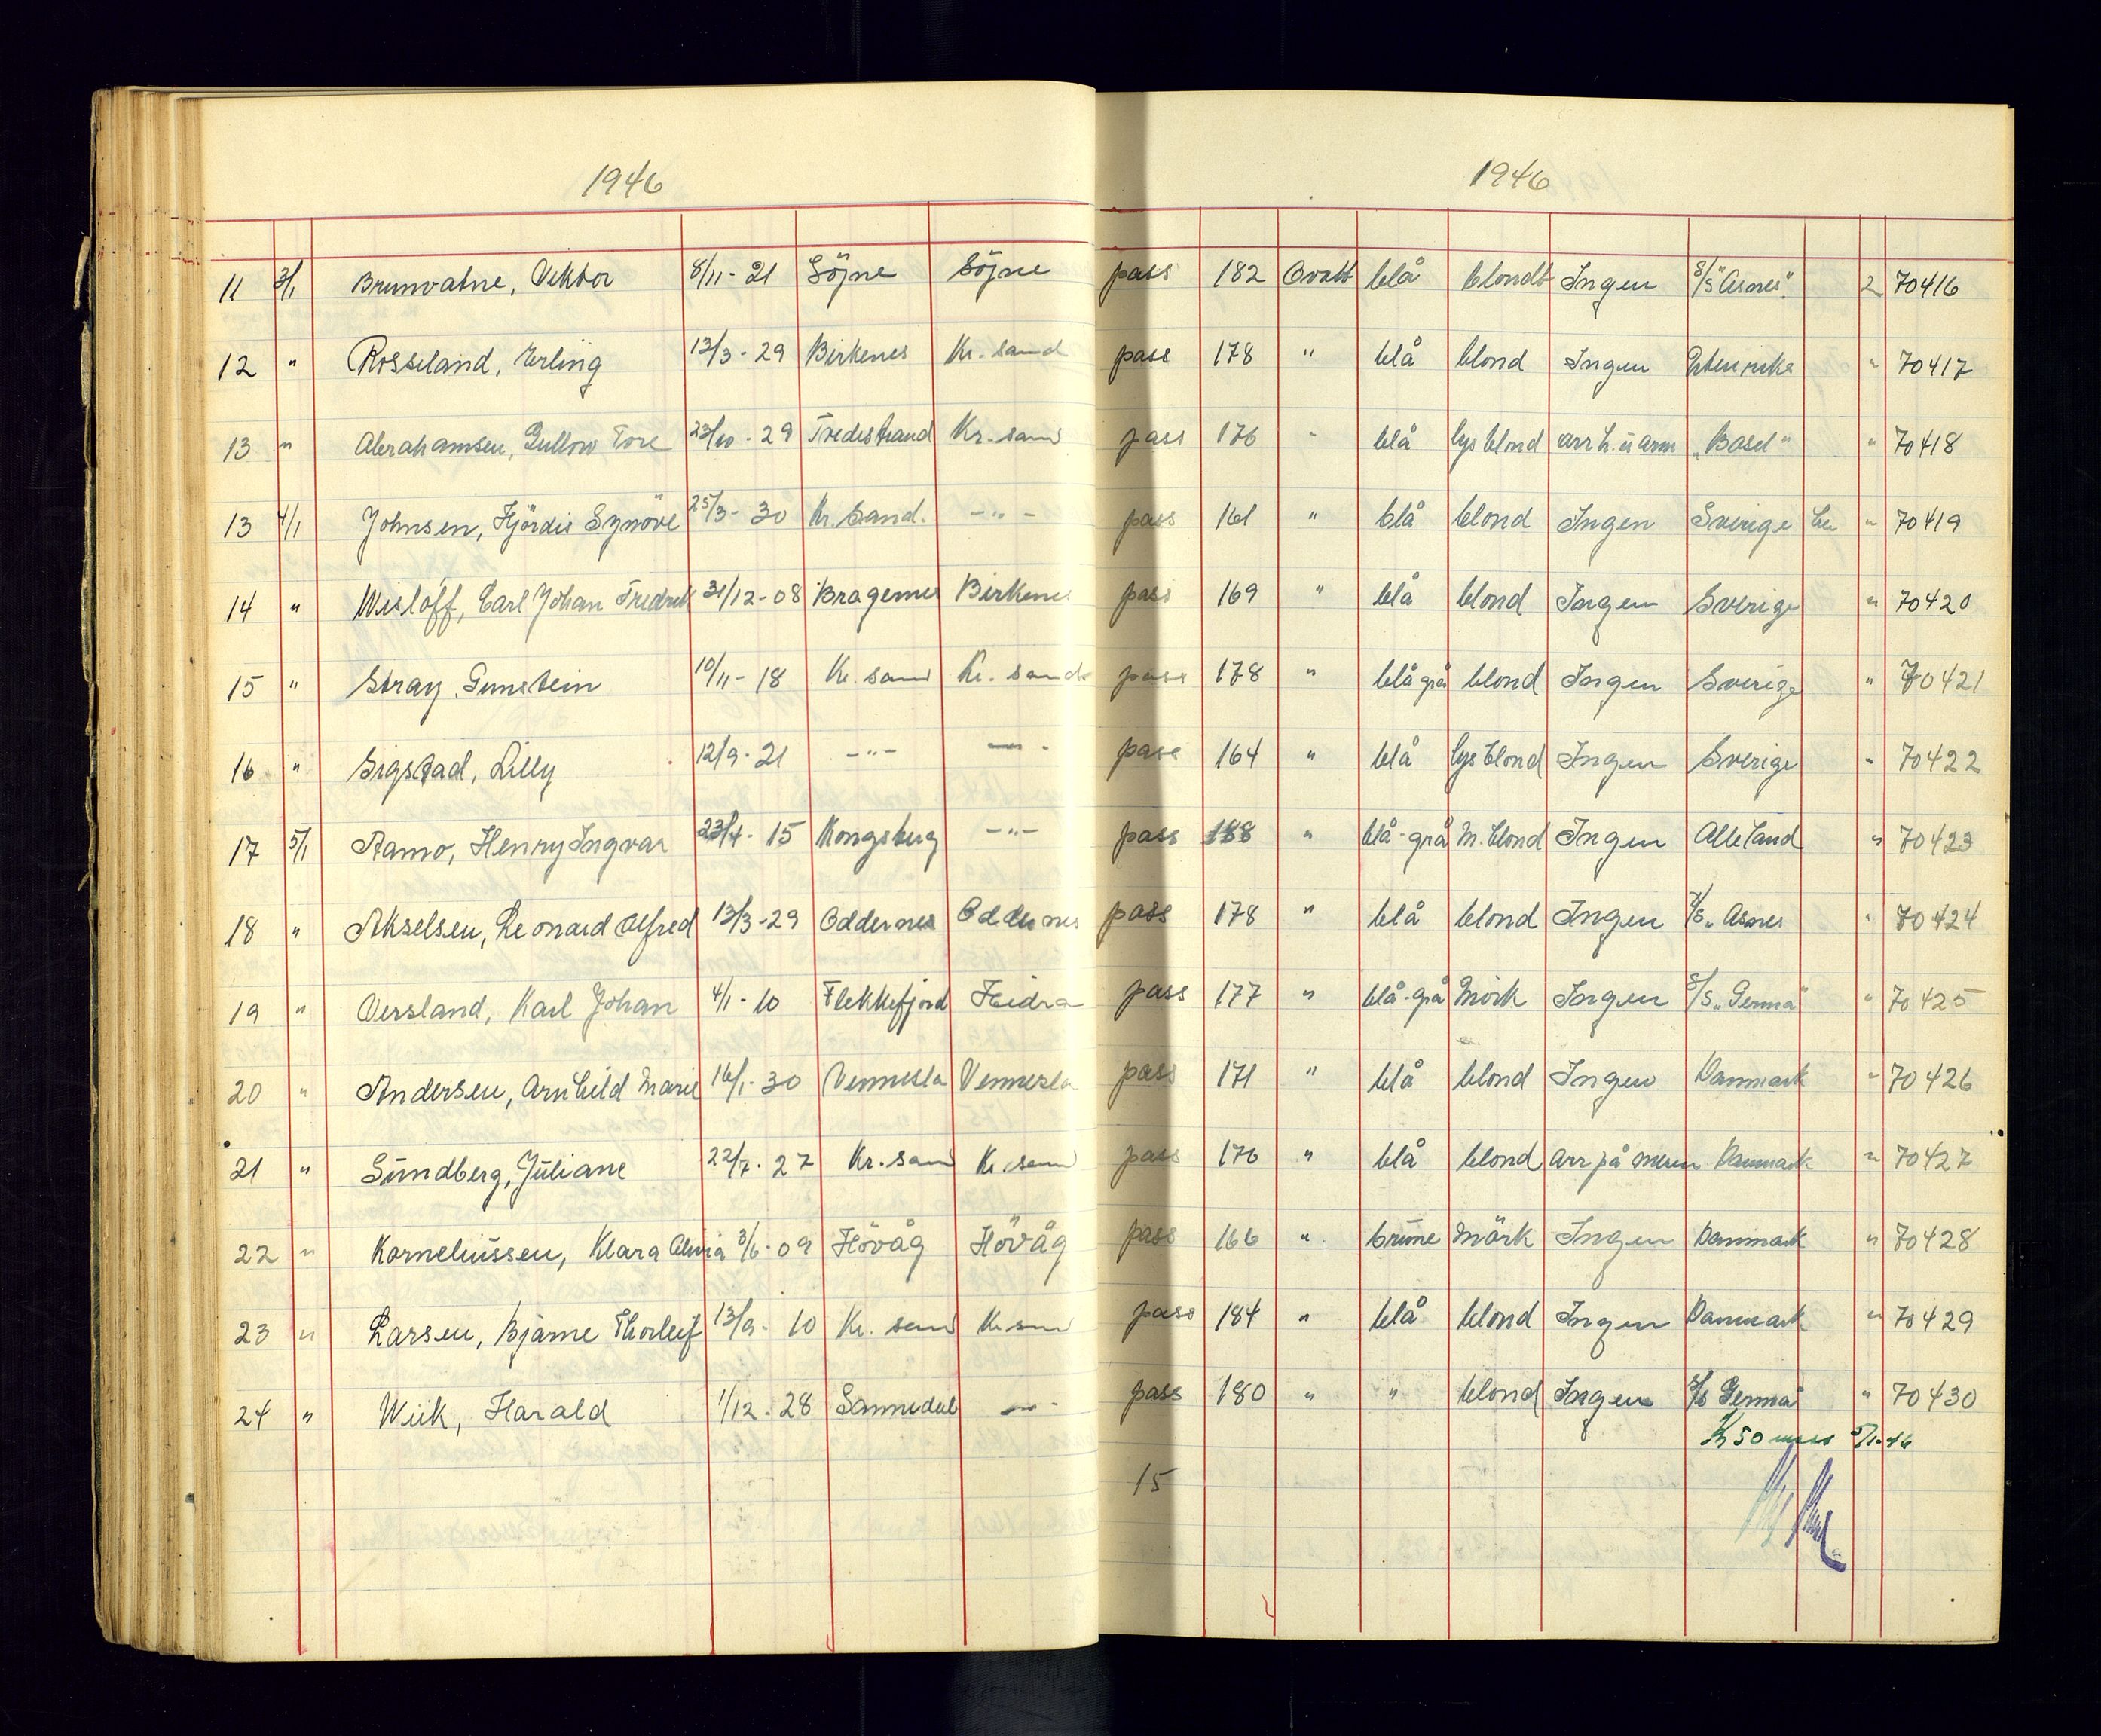 1946 1946
11 3/1 Brunvatne, Viktor 8/11-21 Söjne Söjne pass 182 Ovalt blå blondt Ingen S/S "Asnes". 2 70416
12 " Rosseland, Erling 13/3-29 Birkenes Kr. sand pass 178 " blå blond Ingen " 70417
13 " Abrahamsen, Gullow Tore 23/10-29 Tvedestrand Kr. sand pass 176 " blå lys blond arr h. u arm "Basel" " 70418
13 4/1 Johnsen, Hjördis Synöve 25/3-30 Kr. Sand. -"- pass 161 " blå blond Ingen Sverige " 70419
14 " Wislöff, Carl Johan Fredrik 31/12-08 Bragernes Birkenes pass 169 " blå blond Ingen Sverige " 70420
15 " Stray, Gunstein 10/11-18 Kr. sand Kr. sand pass 178 " blå grå blond Ingen Sverige " 70421
16 " Sigstad, Lilly 12/9-21 -"- -"- pass 164 " blå lys blond Ingen Sverige " 70422
17 5/1 Aamo, Henry Ingvar 23/4-15 Kongsberg -"- pass 188 " blå-grå M. blond Ingen Alle land " 70423
18 " Akselsen, Leonard Alfred 13/3-29 Oddernes Oddernes pass 178 " blå blond Ingen S/S "Asnes " 70424
19 " Versland, Karl Johan 4/1-10 Flekkefjord Hidra pass 177 " blå-grå Mörk Ingen S/S "Germa" " 70425
20 " Andersen, Arnhild Marie 16/1-30 Vennesla Vennesla pass 171 " blå blond Ingen Danmark " 70426
21 " Sundberg, Juliane 22/7-27 Kr. sand Kr. sand pass 176 " blå blond arr på Danmark " 70427
22 " Korneliussen, Klara 3/6-09 Hövåg Hövåg pass 166 " brune Mörk Ingen Danmark " 70428
23 " Larsen, Bjarne Thorleif 13/9-10 Kr. sand Kr. sand pass 184 " blå blond Ingen Danmark " 70429
24 " Wiik, Harald 1/12-28 Sannidal -"- pass 180 " " blond Ingen S/S Germa " 70430
5/1-46
15